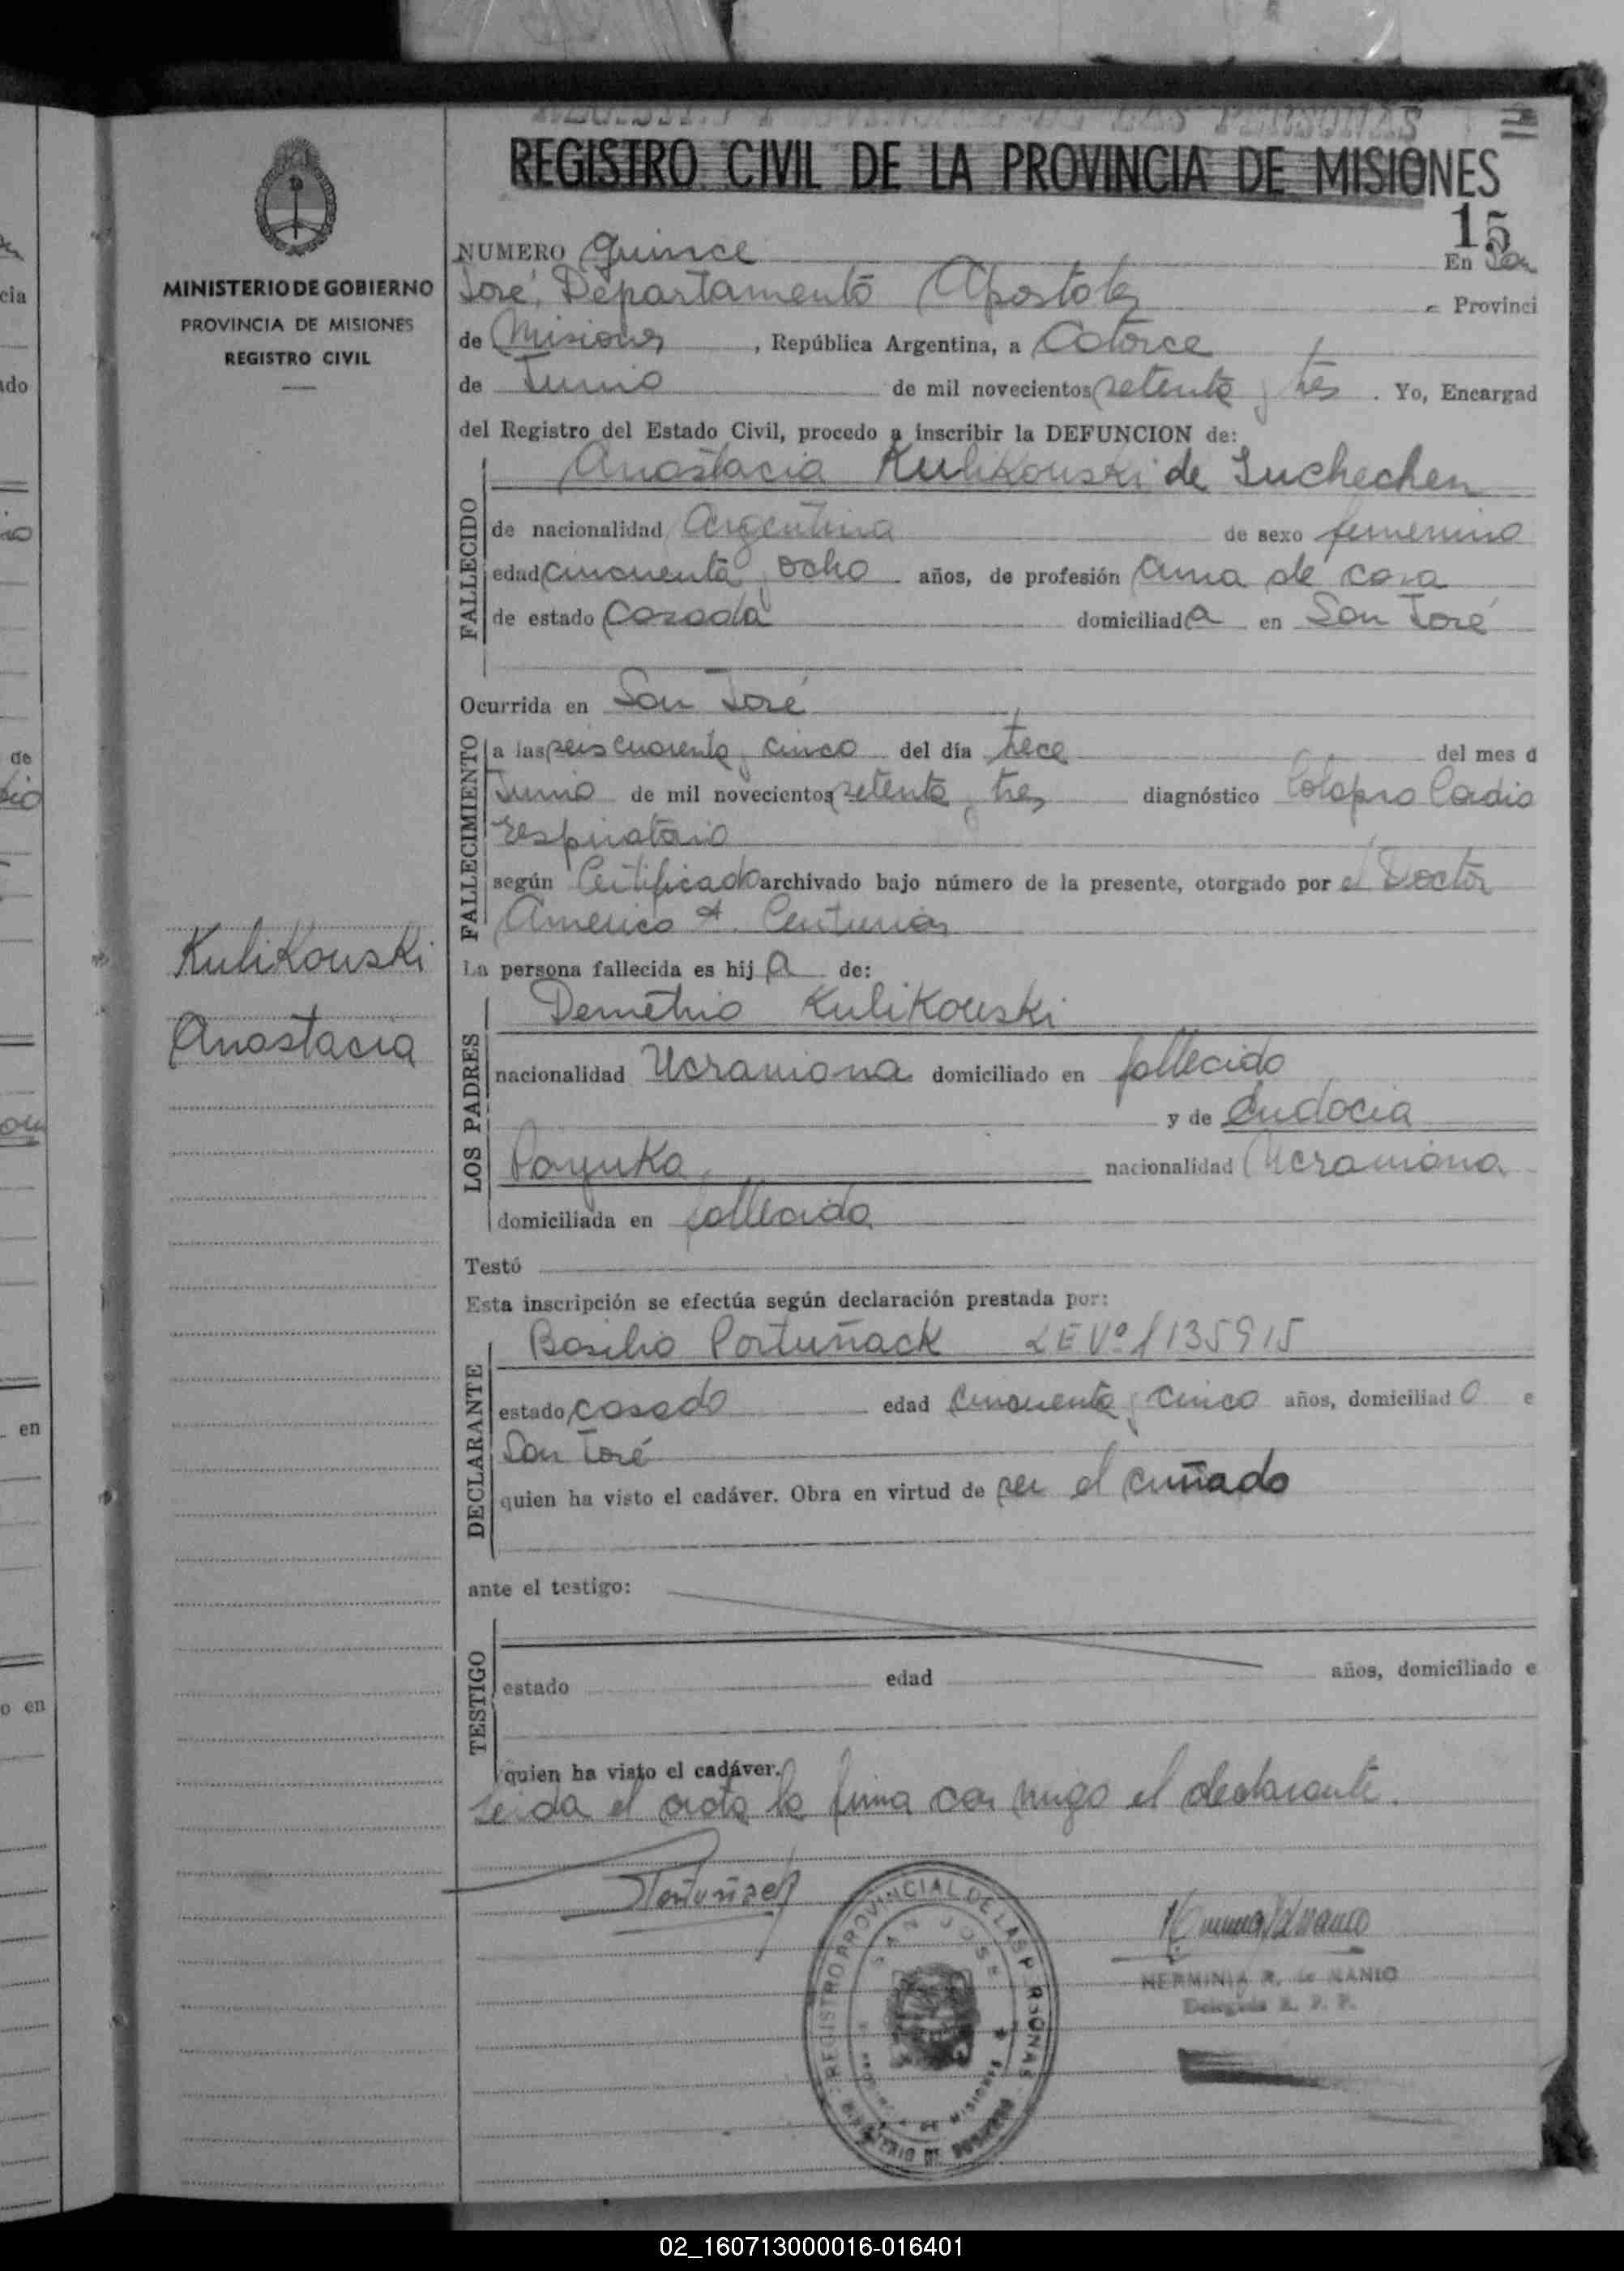 REGISTRO CIVIL DE LA PROVINCIA DE MISIONES
15
MINISTERIO DE GOBIERNO
PROVINCIA DE MISIONES
REGISTRO CIVIL
NUMERO quince En San
José, Departamento Apostoles Provinci
de Misiones, República Argentina, a Catorce
de Junio de mil novecientos setenta y tres. Yo, Encargad
del Registro del Estado Civil, procedo a inscribir la DEFUNCION de:
FALLECIDO
Anastacia Kulikouski de Suchechen
de nacionalidad Argentina de sexo femenino
edad cincuenta y ocho años, de profesión ama de casa
de estado casada domiciliada en San José
Ocurrida en San José
FALLECIMIENTO
a las seis cuarenta y cinco del día trece del mes d
Junio de mil novecientos setenta y tres diagnóstico Colapso Cardio
respiratorio
según Certificado archivado bajo número de la presente, otorgado por el Doctor
Americo A. Centurion
Kulikouski
Anastacia
La persona fallecida es hija de:
LOS PADRES
Demetrio Kulikouski
nacionalidad Ucraniana domiciliado en fallecido
y de Eudocia
Payuka nacionalidad Ucraniana
domiciliada en fallecida
Testó
Esta inscripción se efectúa según declaración prestada por:
DECLARANTE
Basilio Portuñack LE Nº 1135915
estado casado edad cincuenta y cinco años, domiciliado e
San José
quien ha visto el cadáver. Obra en virtud de ser el cuñado
ante el testigo:
TESTIGO
estado edad años, domiciliado e
quien ha visto el cadáver.
Leida el acta la firma con migo el declarante.
REGISTRO PROVINCIAL DE LAS PERSONAS
SAN JOSE
HERMINIA R. de NANIO
Delegada R. P. P.
02_160713000016-016401